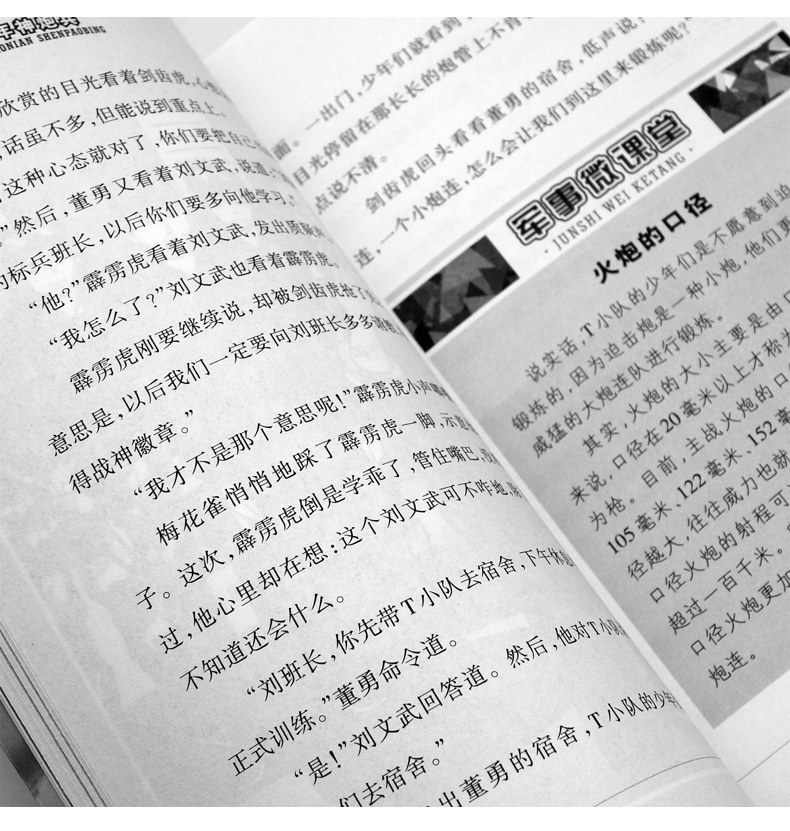 SHENPAOBING
欣赏的目光看着剑齿虎，心想
话虽不多，但能说到重点上。
这种心态就对了，你们要把自己
”然后，董勇又看着刘文武，说道
的标兵班长，以后你们要多向他学习。”
“他？”霹雳虎看着刘文武，发出质疑
“我怎么了？”刘文武也看着霹雳虎。
霹雳虎刚要继续说，却被剑齿虎抢了
意思是，以后我们一定要向刘班长多多请教
得战神徽章。”
“我才不是那个意思呢！”霹雳虎小声嘟
梅花雀悄悄地踩了霹雳虎一脚，示意
子。这次，霹雳虎倒是学乖了，管住嘴巴，没
过，他心里却在想：这个刘文武可不咋地，
不知道还会什么。
“刘班长，你先带T小队去宿舍，下午休息
正式训练。”董勇命令道。
“是！”刘文武回答道。然后，他对T小队
们去宿舍。”
出董勇的宿舍，T小队的少年
面。一出门，少年们就看到
目光停留在那长长的炮管上不肯
点说不清。
剑齿虎回头看看董勇的宿舍，低声说：
连，一个小炮连，怎么会让我们到这里来锻炼呢？”
军事微课堂
·JUNSHI WEI KETANG·
火炮的口径
说实话，T小队的少年们是不愿意到迫
锻炼的，因为迫击炮是一种小炮，他们更
威猛的大炮连队进行锻炼。
其实，火炮的大小主要是由口
来说，口径在20毫米以上才称为
为枪。目前，主战火炮的口
105毫米、122毫米、152毫
径越大，往往威力也就
口径火炮的射程可
超过一百千米。
口径火炮更加
炮连。